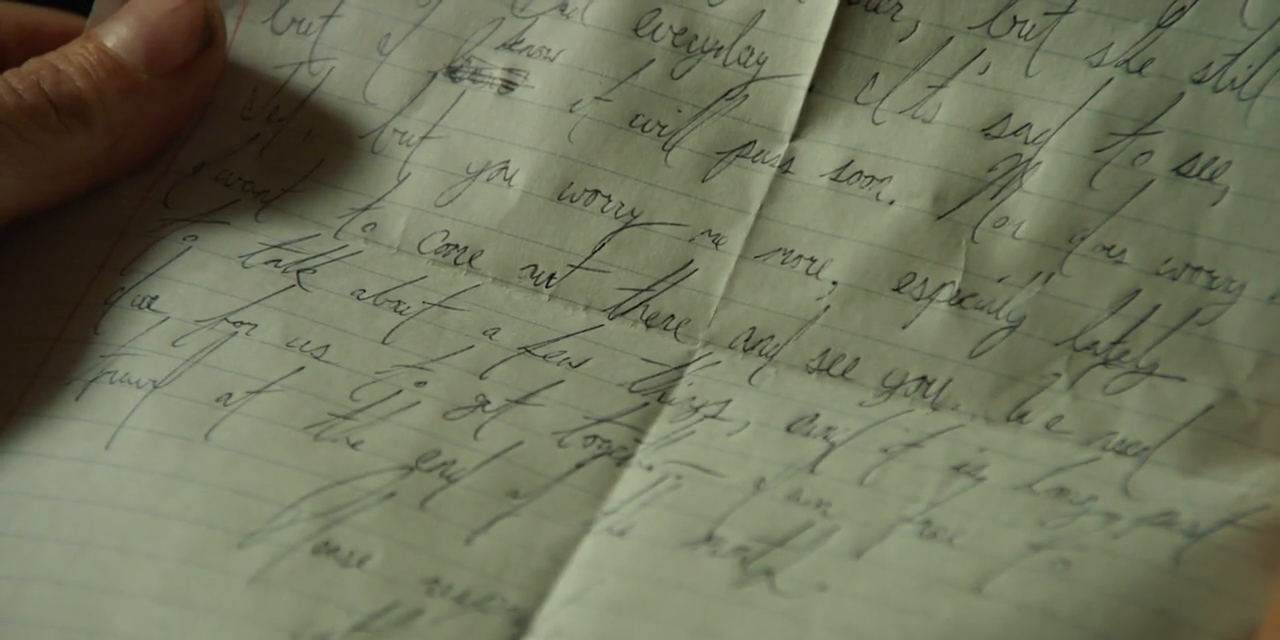 but she still
everyday. It's sad to see,
but I know it will pass soon. Mom does worry
but you worry me more, especially lately
I want to come out there and see you. We need
to talk about a few things, and it is long past
due for us to get together. I am free to
travel at the end of the month.
Please